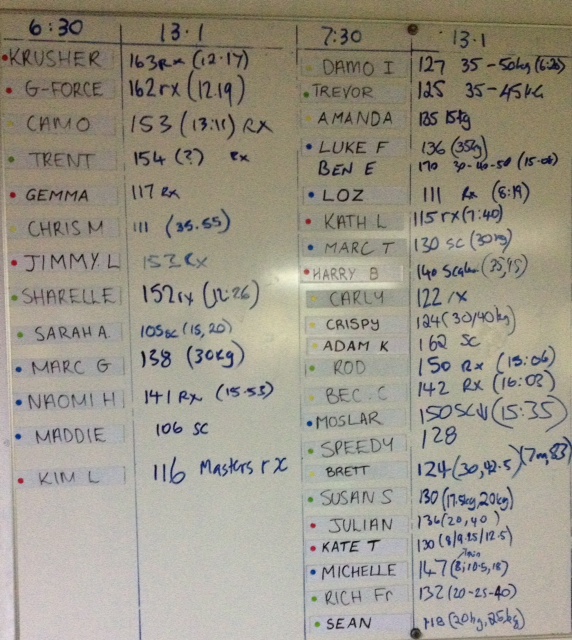 6:30 13.1
KRUSHER 163 rx (12.17)
G-FORCE 162 rx (12.19)
CAMO 153 (13:11) RX
TRENT 154 (?) Rx
GEMMA 117 Rx
CHRIS M 111 (35.55)
JIMMY L 153 Rx
SHARELLE 152 rx (12:26)
SARAH A 105 sc (15, 20)
MARC G 138 (30kg)
NAOMI H 141 Rx (15.53)
MADDIE 106 SC
KIM L 116 Masters rx
7:30 13.1
DAMO I 127 35-50kg (6:26)
TREVOR 125 35-45KG
AMANDA 135 15kg
LUKE F 136 (35kg)
BEN E 170 30-40-50 (15:06)
LOZ 111 Rx (8:19)
KATH L 115 rx (7:40)
MARC T 130 SC (30kg)
HARRY B 140 Scale (35,45)
CARLY 122 rx
CRISPY 124 (30/40kg)
ADAM K 162 SC
ROD 150 Rx (15:06)
BEC C 142 RX (16:02)
MOSLAR 150 SC (15:35)
SPEEDY 128
BRETT 124 (30, 42.5) (7m, 83)
SUSAN S 130 (17.5kg, 20kg)
JULIAN 136 (20, 40)
KATE T 130 (8/9.25/12.5)
MICHELLE 147 (8, 10.5, 18)
RICH Fr 132 (20-25-40)
SEAN 118 (20kg, 25kg)